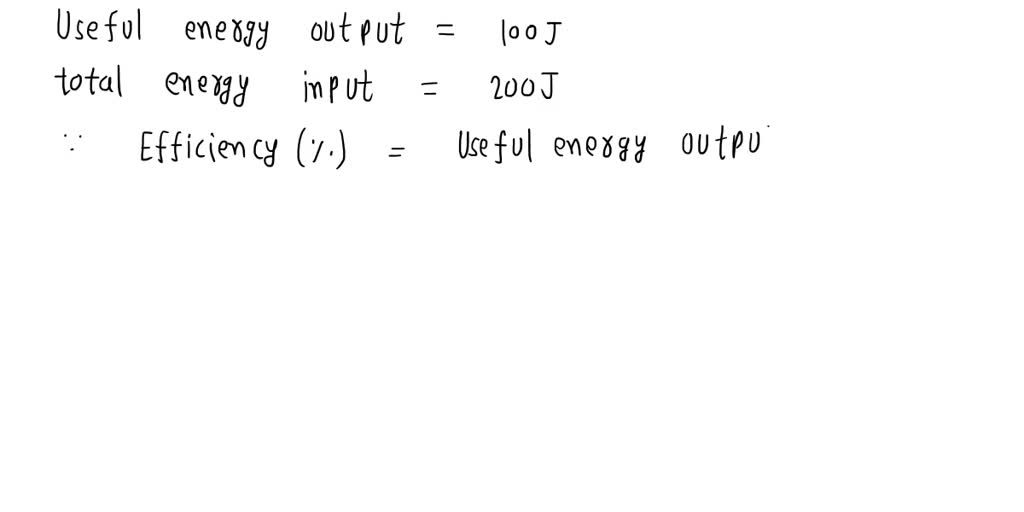 Useful energy output = 100J
total energy input = 200J
∵ Efficiency (%) = Useful energy outpu